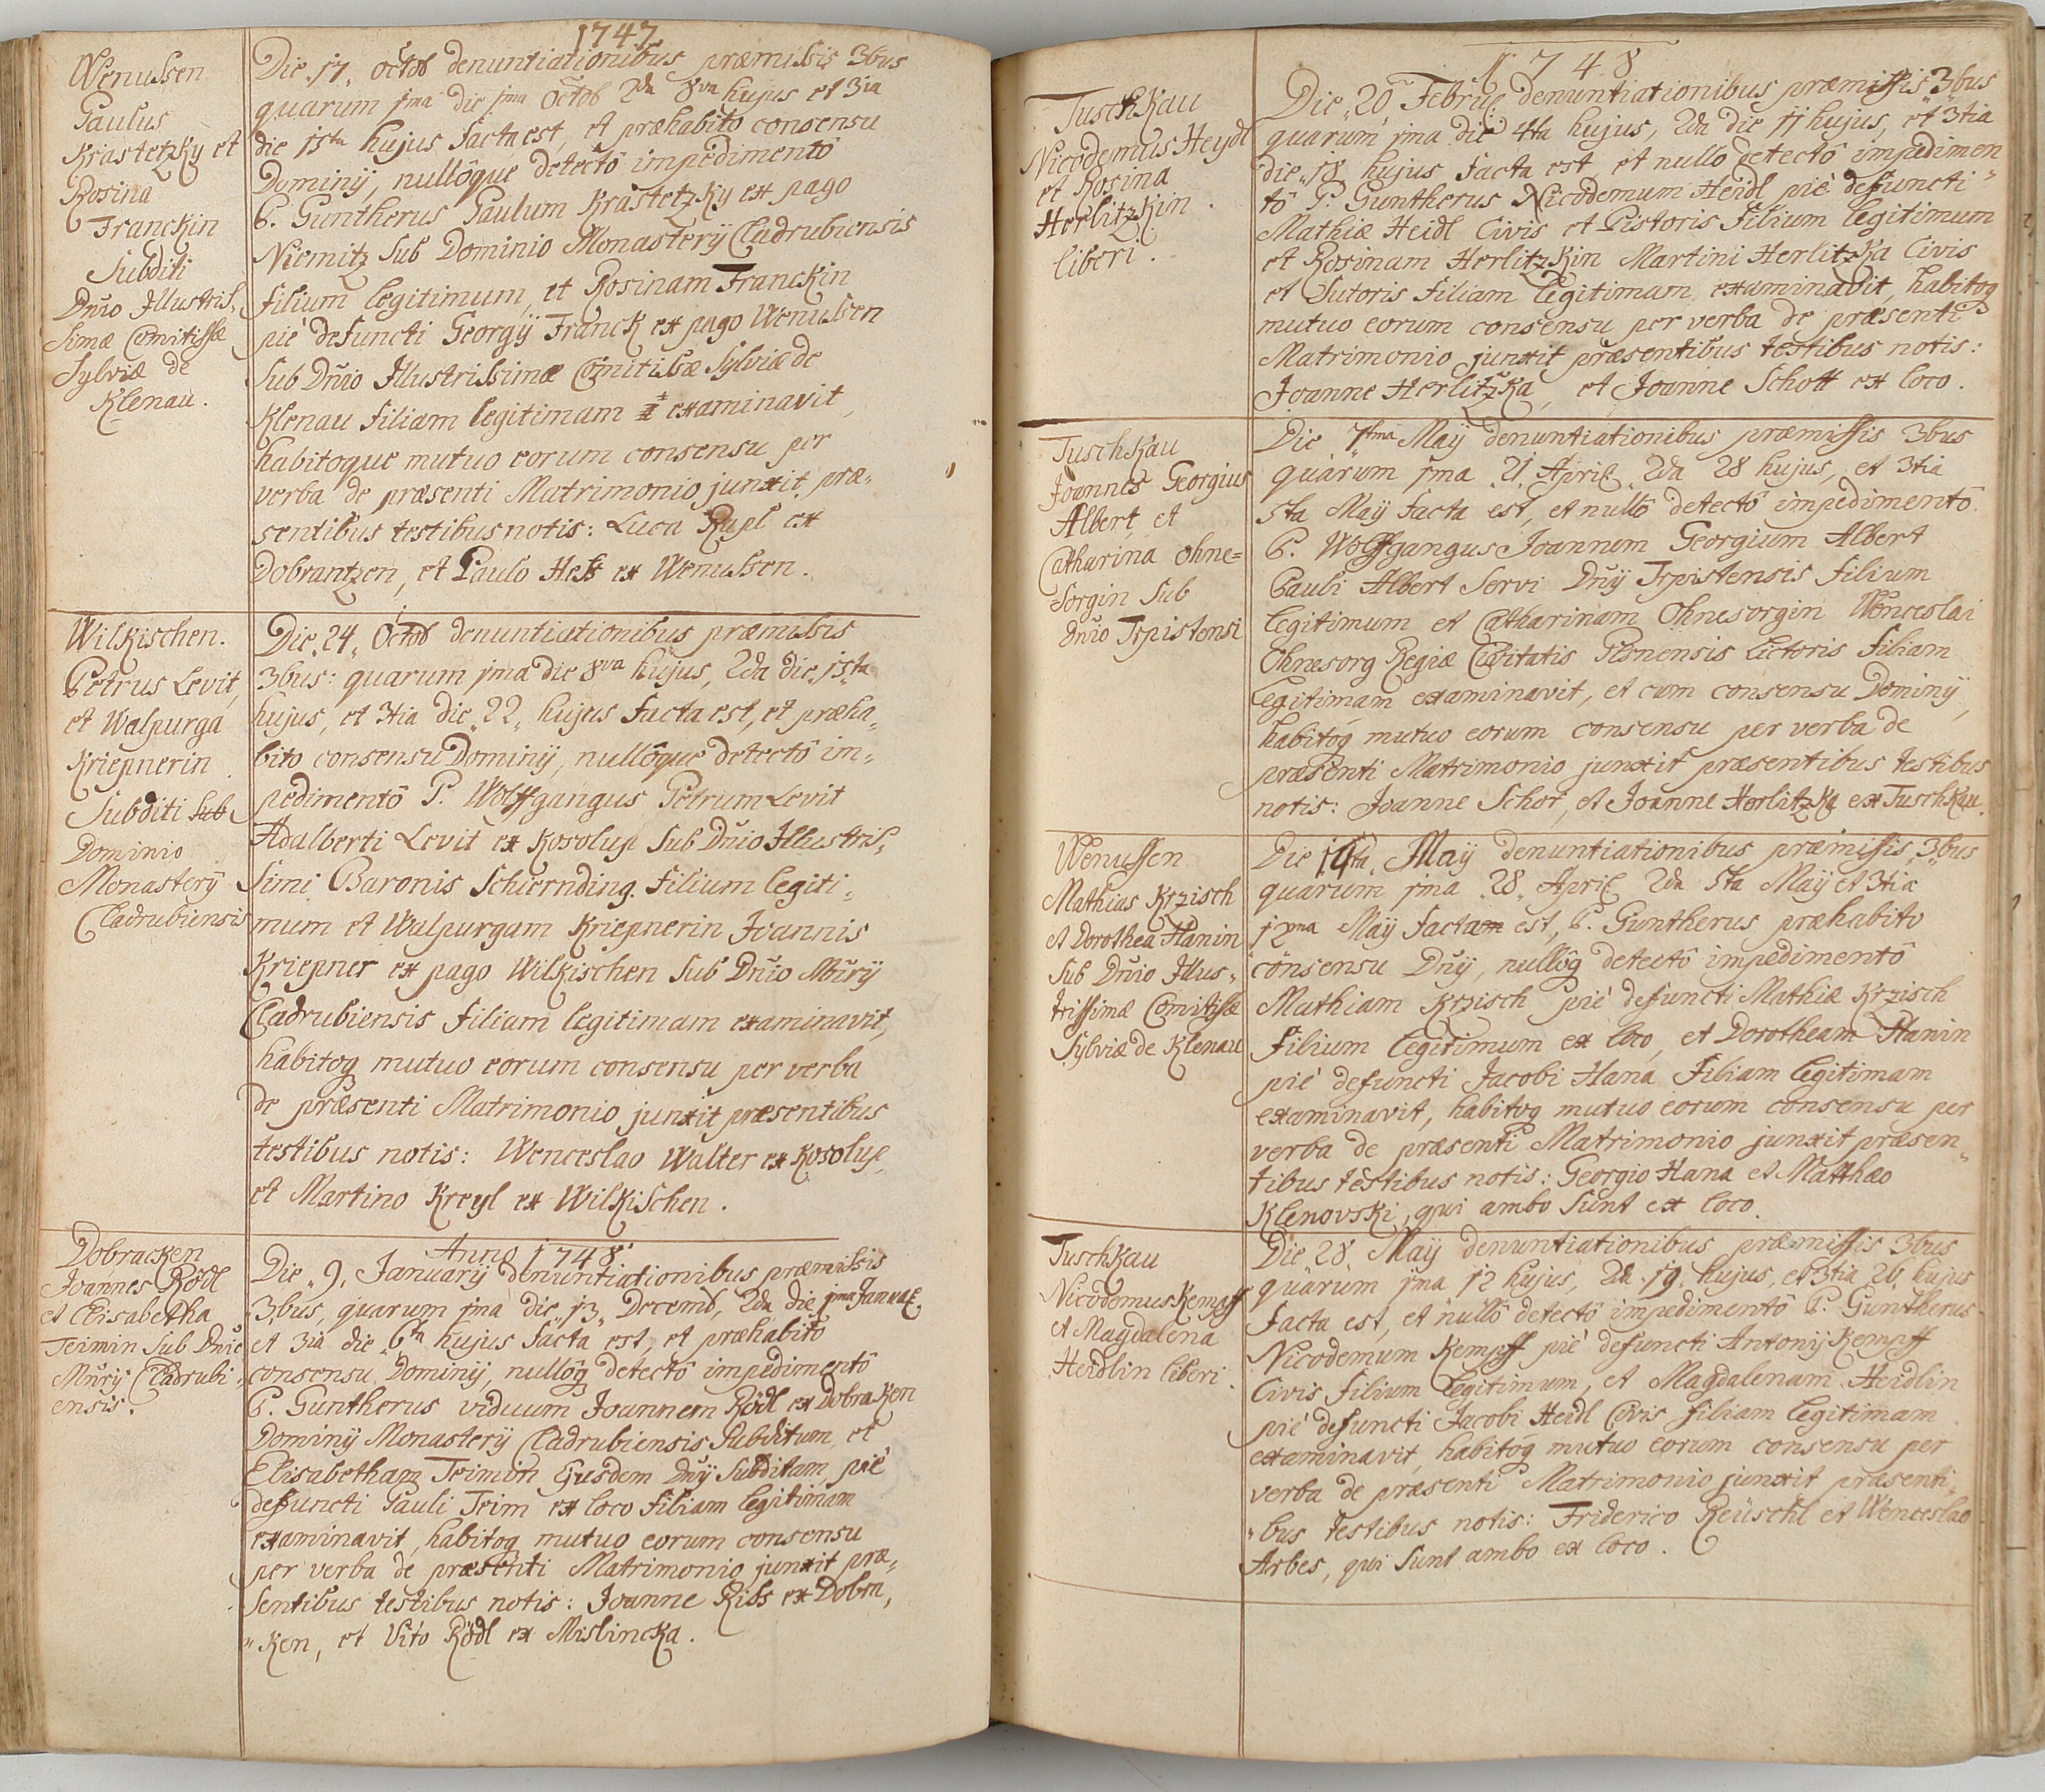 1747
Wenussen
Paulus
Krastetzky et
Rosina
Franckin
Subditi
Dnio Illustris,
simæ Comitissæ
Sylviæ de
Klenau.
Die 17. octob denuntiationibus præmissis 3bus
quarum jma die jma Octob 2da 8va hujus et 3ia
die 15ta hujus facta est, et præhabito consensu
Dominÿ, nullôque detectô impedimentô
P. Guntherus Paulum Krastetzky ex pago
Niemitz sub Dominio Monasterÿ Cladrubiensis
filium legitimum, et Rosinam Franckin
piè defuncti Georgÿ Franck ex pago Wenussen
sub Dnio Illustrissimæ Comitissæ Sylviæ de
Klenau filiam legitimam examinavit,
habitoque mutuo eorum consensu per
verba de præsenti Matrimonio junxit, præ,
sentibus testibus notis: Luca Rapl ex
Dobrantzen, et Paulo Hess ex Wenussen.
Wilkischen.
Petrus Levit,
et Walpurga
Kriepnerin
Subditi sub
Dominio
Monasterÿ
Cladrubiensis
Die 24. Octob denuntiationibus præmissis
3bus: quarum jma die 8va hujus, 2da die 15ta
hujus, et 3tia die 22, hujus facta est, et præha,
bito consensu Dominÿ, nullôque detectô im,
pedimentô P. Wolffgangus Petrum Levit
Adalberti Levit ex Kosolup sub Dnio Illustris,
simi Baronis Schirnding. filium legiti,
mum et Walpurgam Kriepnerin Joannis
Kriepner ex pago Wilkischen sub Dnio Mnrÿ
Cladrubiensis filiam legitimam examinavit,
habitoq mutuo eorum consensu per verba
de præsenti Matrimonio junxit præsentibus
testibus notis: Wenceslao Walter ex Kosolup,
et Martino Kreyl ex Wilkischen.
Anno 1748
Dobracken
Joannes Rödl
et Elisabetha
Teimin sub Dnio
Mnrÿ Cladrubi,
ensis.
Die 9. Januarÿ denuntiationibus præmissis
3bus, quarum jma die 13, Decemb, 2da die jma Januar,
et 3ia die 6ta hujus facta est, et præhabito
consensu Dominÿ, nullôq detectô impedimentô
P. Guntherus viduum Joannem Rödl ex Dobraken
Dominÿ Monasterÿ Cladrubiensis subditum, et
Elisabetham Teimin Ejusdem Dnÿ subditam piè
deffuncti Pauli Teim ex loco filiam legitimam
examinavit, habitoq mutuo eorum consensu
per verba de præsenti Matrimonio junxit præ,
sentibus testibus notis: Joanne Riss ex Dobra,
ken, et Vito Rödl ex Mislincka.
1748
Tuschkau
Nicodemus Heydl
et Rosina
Herlitzkin.
liberi.
Die 20 Febru denuntiationibus præmissis 3bus
quarum jma die 4ta hujus, 2da die 11 hujus, et 3tia
die 18 hujus facta est, et nullô detectô impedimen
tô P. Guntherus Nicodemum Heidl piè deffuncti
Mathiæ Heidl Civis et Pistoris filium legitimum
et Rosinam Herlitzkin Martini Herlitzka Civis
et Sutoris filiam legitimam examinavit, habitoq
mutuo eorum consensu per verba de præsenti
Matrimonio junxit præsentibus testibus notis:
Joanne Herlitzka, et Joanne Schott ex loco.
Tuschkau
Joannes Georgius
Albert, et
Catharina Ohne=
sorgin sub
Dnio Trpistensi
Die 7tma Maÿ denuntiationibus præmissis 3bus
quarum jma 21. April 2da 28 hujus, et 3tia
5ta Maÿ facta est, et nullô detectô impedimentô
P. Wolffgangus Joannem Georgium Albert
Pauli Albert Servi Dnÿ Trpistensis filium
legitimum et Catharinam Ohnesorgin Wenceslai
Ohnesorg Regiæ Civitatis Plsnensis Lictoris filiam
legitimam examinavit, et cum consensu Dominÿ,
habitoq mutuo eorum consensu per verba de
præsenti Matrimonio junxit præsentibus testibus
notis: Joanne Schot, et Joanne Herlitzka ex Tuschkau.
Wenussen
Mathias Krzisch
et Dorothea Hanin
sub Dnio Illus,
trissimæ Comitissæ
Sylviæ de Klenau
Die 14ta Maÿ denuntiationibus præmissis 3bus
quarum jma 28. April 2da 5ta Maÿ et 3tia
12ma Maÿ factam est, P. Guntherus præhabito
consensu Dnÿ, nullôq detectô impedimentô
Mathiam Krzisch piè defuncti Mathiæ Krzisch
filium legitimum ex loco, et Dorotheam Hanin
piè defuncti Jacobi Hana filiam legitimam
examinavit, habitoq mutuo eorum consensu per
verba de præsenti Matrimonio junxit præsen,
tibus testibus notis: Georgio Hana et Matthæo
Klenovski, qui ambo sunt ex loco.
Tuschkau
Nicodemus Kempff
et Magdalena
Heidlin liberi.
Die 28. Maÿ denuntiationibus præmissis 3bus
quarum jma 12 hujus, 2da 19. hujus, et 3tia 26 hujus
facta est, et nullô detectô impedimentô P. Guntherus
Nicodemum Kempff piè defuncti Antonÿ Kempff
Civis filium legitimum, et Magdalenam Heidlin
piè defuncti Jacobi Heidl Civis filiam legitimam
examinavit, habitoq mutuo eorum consensu per
verba de præsenti Matrimonio junxit præsenti,
bus testibus notis: Friderico Reüschl et Wenceslao
Arbes, qui sunt ambo ex loco.